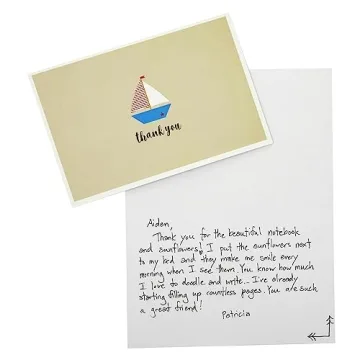 thank you
Aiden,
Thank you for the beautiful notebook
and sunflowers! I put the sunflowers next
to my bed and they make me smile every
morning when I see them. You know how much
I love to doodle and write... I've already
starting filling up countless pages. You are such
a great friend!
Patricia